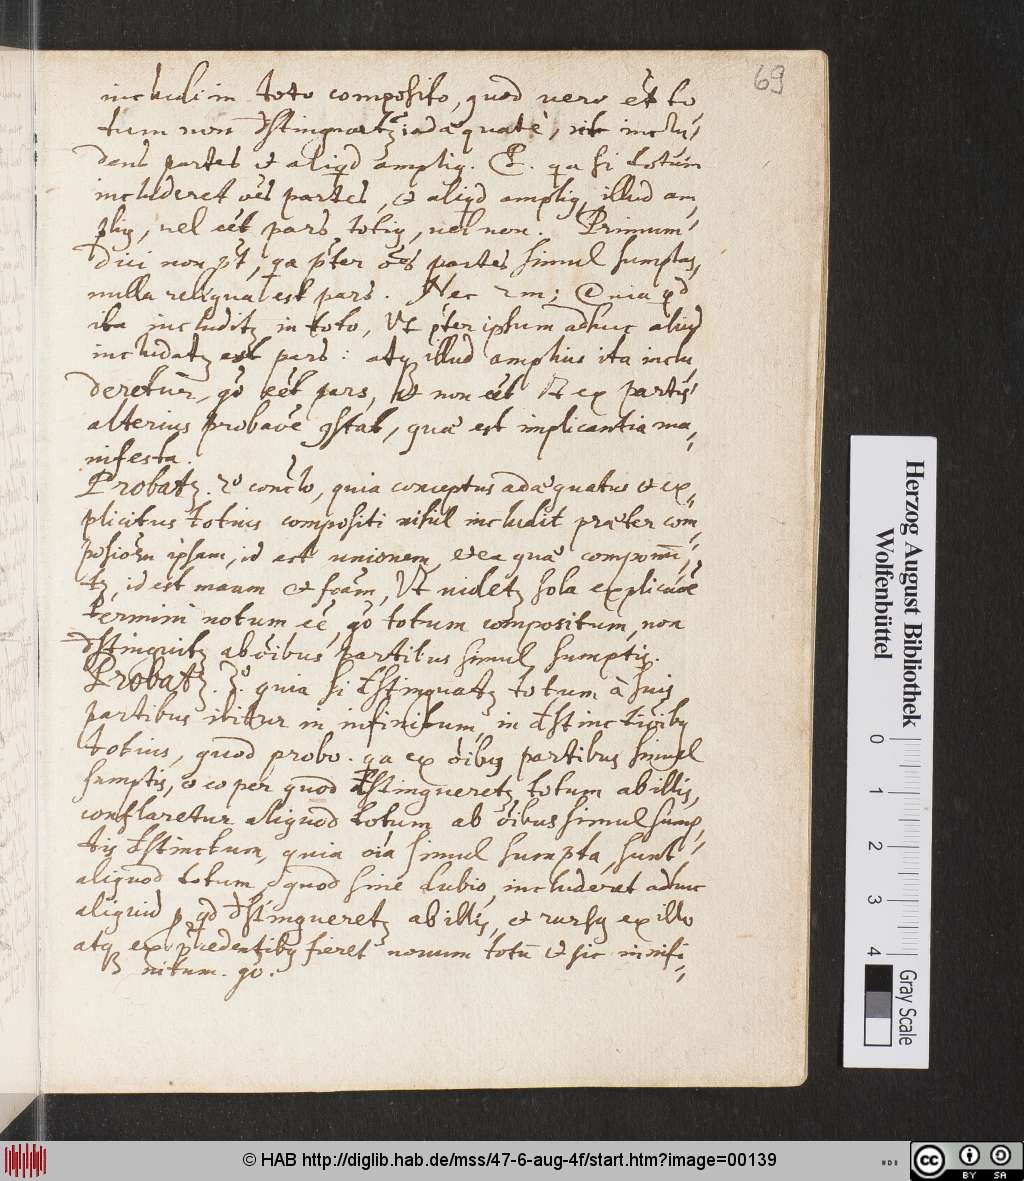 69
includi in toto composito, quod vero et to
tum non dstinguatz ada quate, sit inclu
dens partes et aliqd ampliq. E. qa si totum
includeret oes partes, et aliqd ampliq, illud am
pliq, vel eet pars totiq, vel non. Primum
dici non pt, qa pter oes partes simul sumptas,
nulla reliqua est pars. Nec 2m; Quia qd
ita includitz in toto, Ut pter ipsum adhuc aliqd
includatz est pars: atq illud amplius ita inclu
deretur, go eet pars, et non eet ex partis
alterius probave gstat, qua est implicantia ma
nifesta.
Probatz. 2º conclo, quia conceptus ada quatus et ex
plicitus totius compositi nihil includit prater com
posiom ipsam, id est unionem, et ea qua componu
tz, id est maam et foam, Ut videtz sola explicaoe
termini notum ee, go totum compositum, non
dstinguitz ab oibus partibus simul sumptis.
Probatz. 3º. quia si dstinguatz totum à suis
partibus ibitur in infinitum, in dstinctioibq
totius, quod probo. qa ex oibus partibus simul
sumptis, et eo per quod dstingueretz totum ab illis,
conflaretur aliquod totum ab oibus simul sump
tis dstinctum, quia oia simul sumpta, sunt
aliquod totum, quod sine dubio, includeret adhuc
aliquid p qd dstingueretz ab illis, et rursq ex illo
atq ex pcedentibq fieret novum totu et sic in infi
nitum. go.
Herzog August Bibliothek
Wolfenbüttel
0 1 2 3 4
Gray Scale
© HAB http://diglib.hab.de/mss/47-6-aug-4f/start.htm?image=00139
cc BY SA